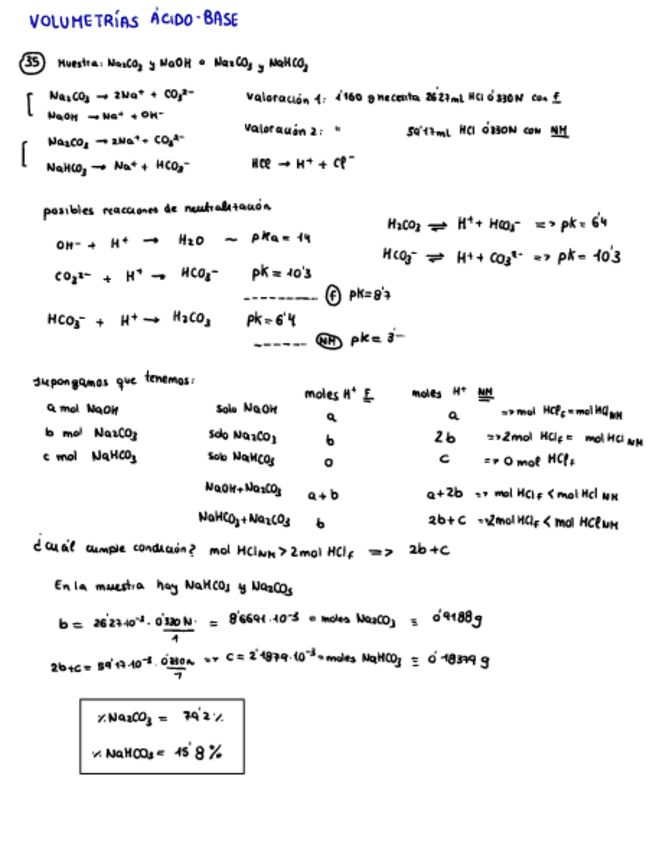 VOLUMETRÍAS ÁCIDO-BASE
35 Muestra: Na₂CO₃ y NaOH o Na₂CO₃ y NaHCO₃
Na₂CO₃ → 2Na⁺ + CO₃²⁻ Valoración 1: 1'160 g necesita 26'27ml HCl 0'330N con f
NaOH → Na⁺ + OH⁻
Na₂CO₃ → 2Na⁺ + CO₃²⁻ Valoración 2: " 59'17ml HCl 0'330N con NM
NaHCO₃ → Na⁺ + HCO₃⁻ HCl → H⁺ + Cl⁻
posibles reacciones de neutralización
OH⁻ + H⁺ → H₂O ~ pKa = 14 H₂CO₃ ⇌ H⁺ + HCO₃⁻ => pK = 6'4
CO₃²⁻ + H⁺ → HCO₃⁻ pK = 10'3 HCO₃⁻ ⇌ H⁺ + CO₃²⁻ => pK = 10'3
---------- f pK=8'7
HCO₃⁻ + H⁺ → H₂CO₃ pK=6'4
------ NM pK= 3'-
supongamos que tenemos: moles H⁺ F moles H⁺ NM
a mol NaOH Solo NaOH a a => mol HClF = mol HClNM
b mol Na₂CO₃ Solo Na₂CO₃ b 2b => 2mol HClF = mol HCl NM
c mol NaHCO₃ Solo NaHCO₃ 0 c => 0 mol HClF
NaOH+Na₂CO₃ a+b a+2b => mol HClF < mol HCl NM
NaHCO₃+Na₂CO₃ b 2b+c => 2mol HClF < mol HClNM
¿cuál cumple condición? mol HClNM > 2mol HClF => 2b+c
En la muestra hay NaHCO₃ y Na₂CO₃
b = 26'27·10⁻³ · 0'330N/1 = 8'6691·10⁻³ = moles Na₂CO₃ ≡ 0'9188g
2b+c = 59'17·10⁻³ · 0'330N/1 => c = 2'1879·10⁻³ = moles NaHCO₃ ≡ 0'18379g
% Na₂CO₃ = 79'2%
% NaHCO₃ = 15'8%